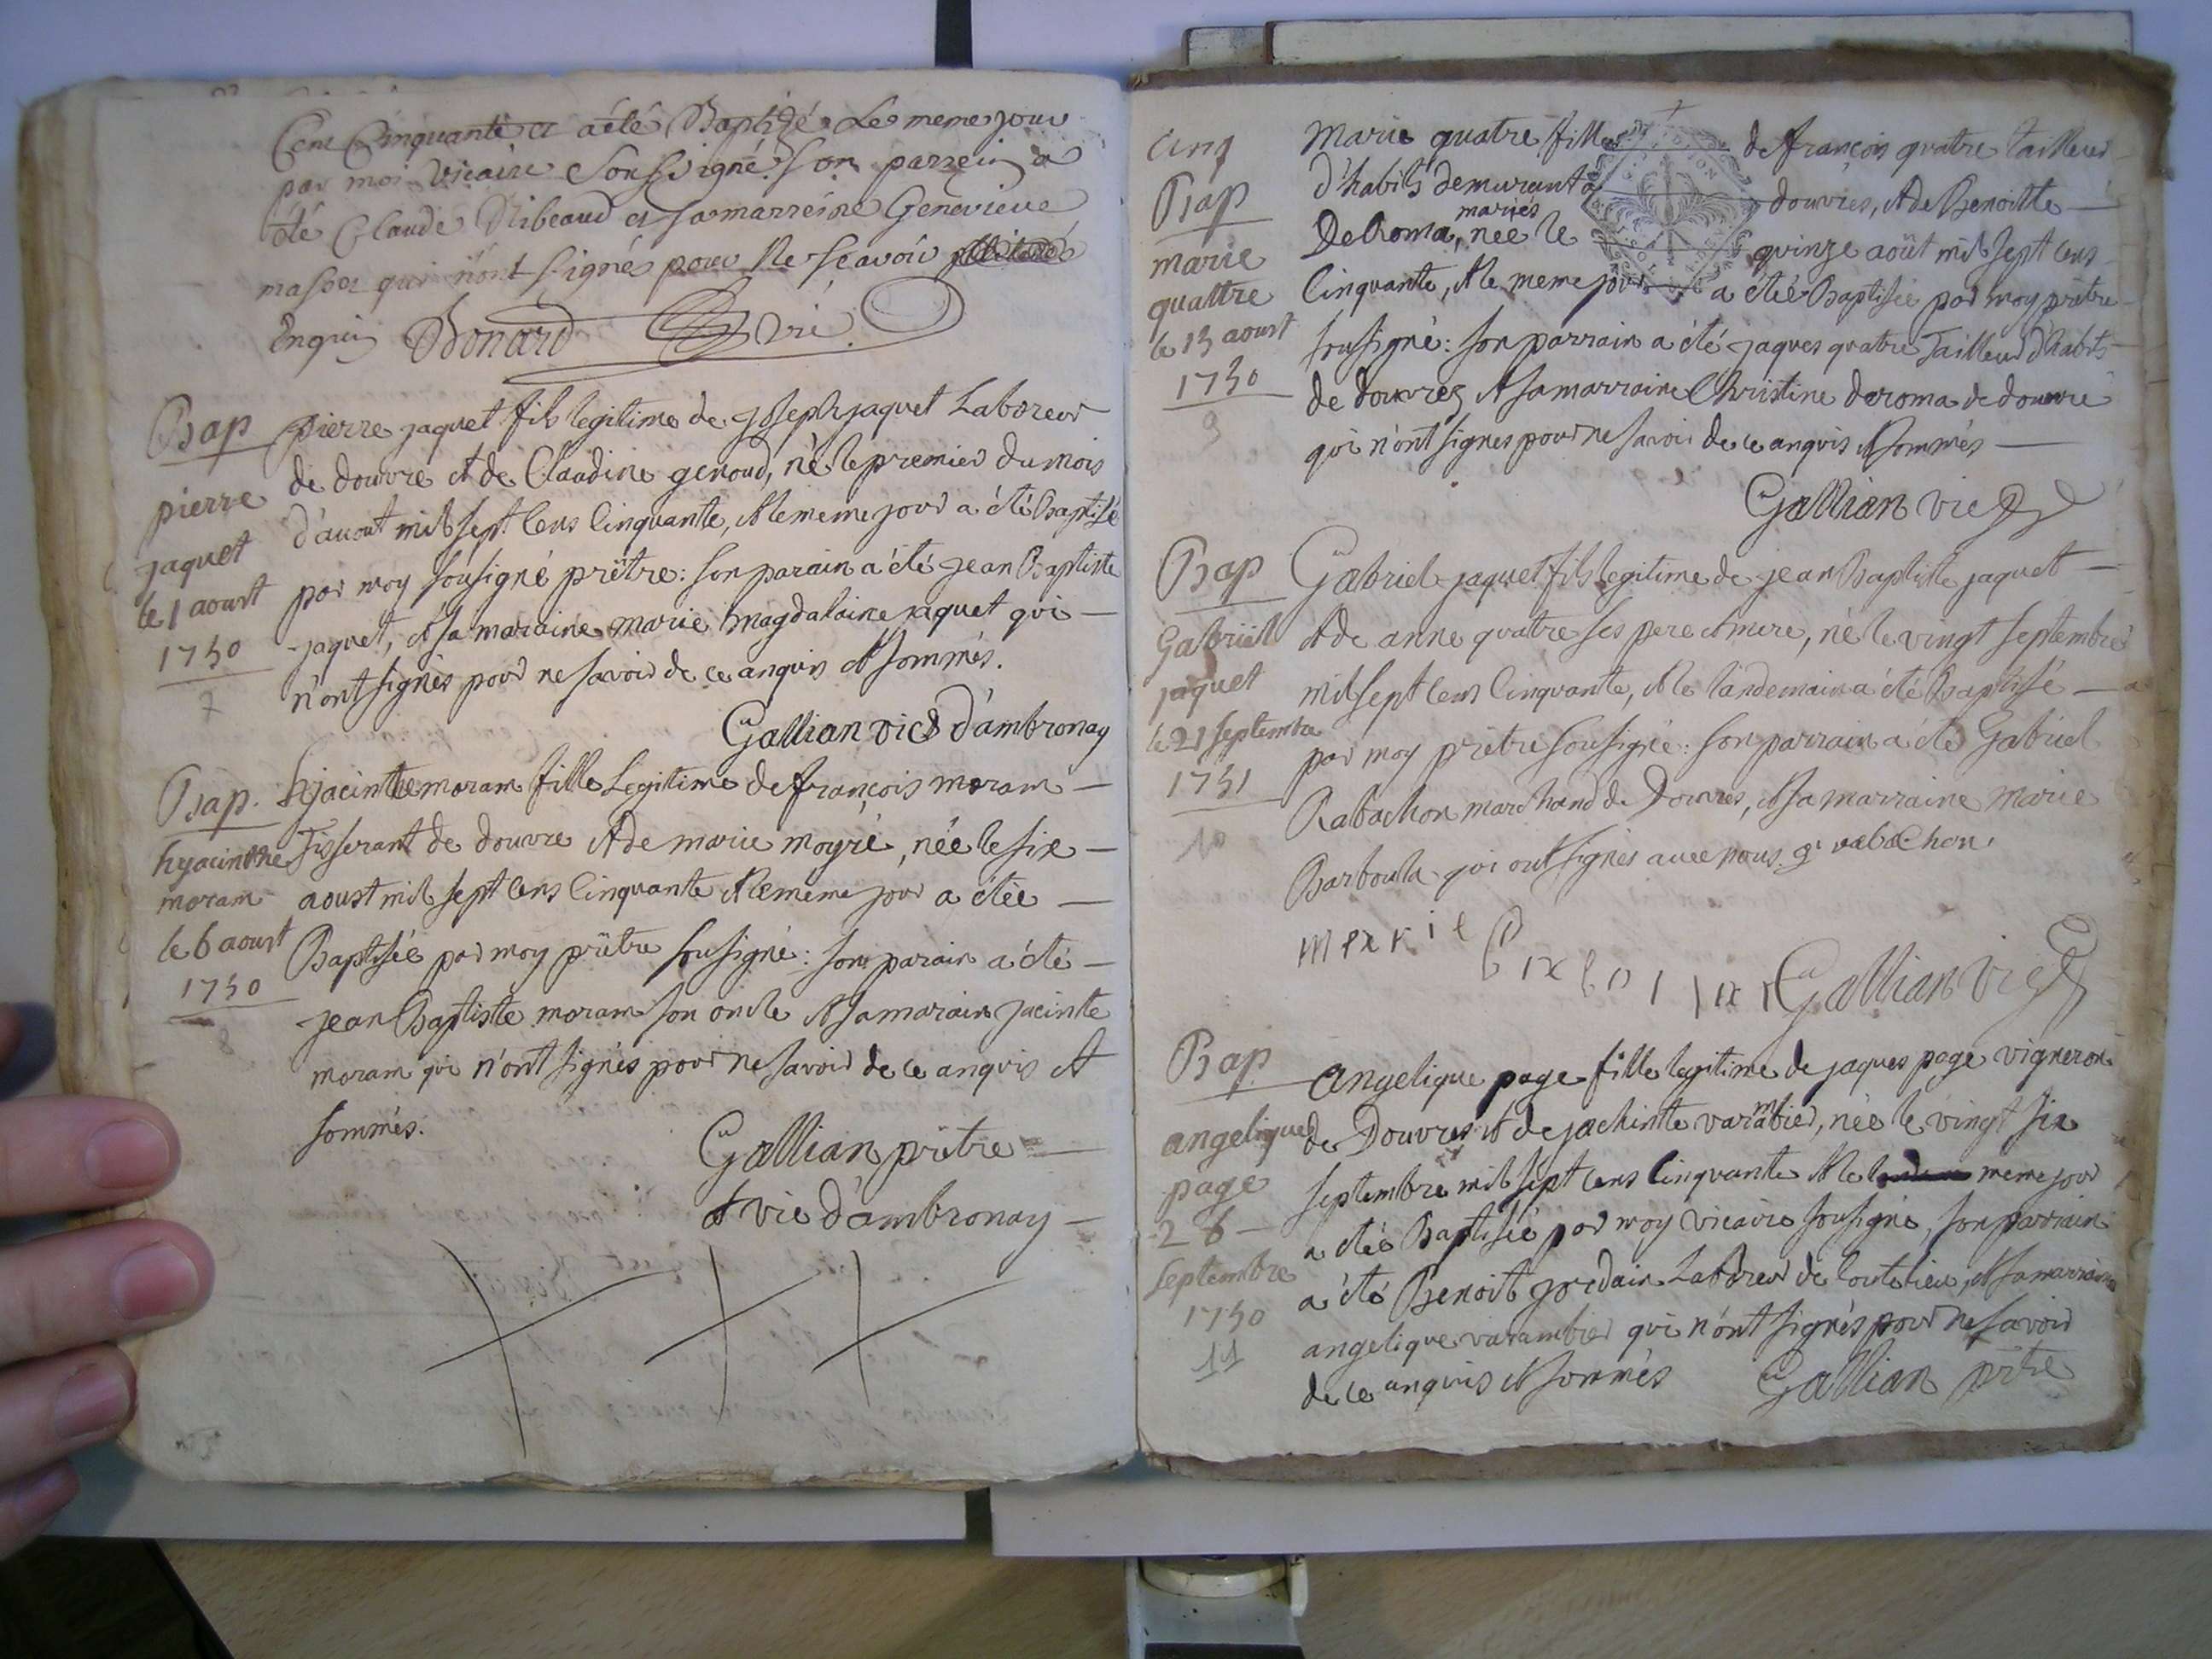 Cent Cinquante et a été Baptizé le meme jour
par moi vicaire Soussigné Son parrein a
été Claude Ribeaud et sa marreine Genevieve
masson qui n'ont signé pour ne scavoir
Enquis Bonard vic
Bap
pierre
jaquet
le 1 aoust
1750
7
pierre jaquet fils legitime de joseph jaquet Laboreur
de douvre et de Claudine genoud, né le premier du mois
d'auout mil sept cens cinquante, et le meme jour a été Baptisé
par moy sousigné prêtre: son parain a été jean Baptiste
jaquet, et sa maraine marie magdalaine jaquet qui —
n'ont signés pour ne savoir de ce anquis et sommés.
Gallian vic d'ambronay
Bap.
hyacinthe
moram
le 6 aoust
1750
8
hyacinthe moram fille Legitime de françois moram —
Tisserant de douvre et de marie moyré, née le six —
aoust mil sept cens cinquante et le meme jour a étée —
Baptisée par moy prêtre sousigné: son parain a été —
jean Baptiste moram son oncle et sa marain jacinte
moram qui n'ont signés pour ne savoir de ce anquis et
sommés.
Gallian prêtre
et vic d'ambronay —
cinq
Bap
marie
quattre
le 15 aoust
1750
9
Marie quatre fille de françois quatre tailleur
d'habits demurant a douvres, et de Benoitte —
DeRoma, mariés née le quinze août mil sept cens
cinquante, et le meme jour a étée Baptisée par moy prêtre
sousigné: son parrain a été jaques quatre Tailleur d'habits
de douvres et sa marraine Christine deroma de douvre
qui n'ont signes pour ne savoir de ce anquis et sommés —
Gallian vic
Bap
Gabriel
jaquet
le 21 septembre
1751
10
Gabriel jaquet fils legitime de jean Baptiste jaquet —
et de anne quatre ses pere et mere, né le vingt septembre
mil sept cens cinquante, et le landemain a été Baptisé —
par moy prêtre sousigné: son parrain a été Gabriel
Rabachon marchand de Douvres, et sa marraine marie
Barboula qui ont signés avec nous. g. rabachon.
Gallian vic
Bap
angelique
page
26 —
septembre
1750
11
angelique page fille legitime de jaques page vigneron
de Douvres et de jachinte varambier, née le vingt six
septembre mil sept cens cinquante et le meme jour
a étée Baptisée par moy vicaire sousigné, son parrain
a été Benoit jordain Laboreur de coutelieu, et sa marraine
angelique varambier qui n'ont signés pour ne savoir
de ce anquis et sommés Gallian prtre